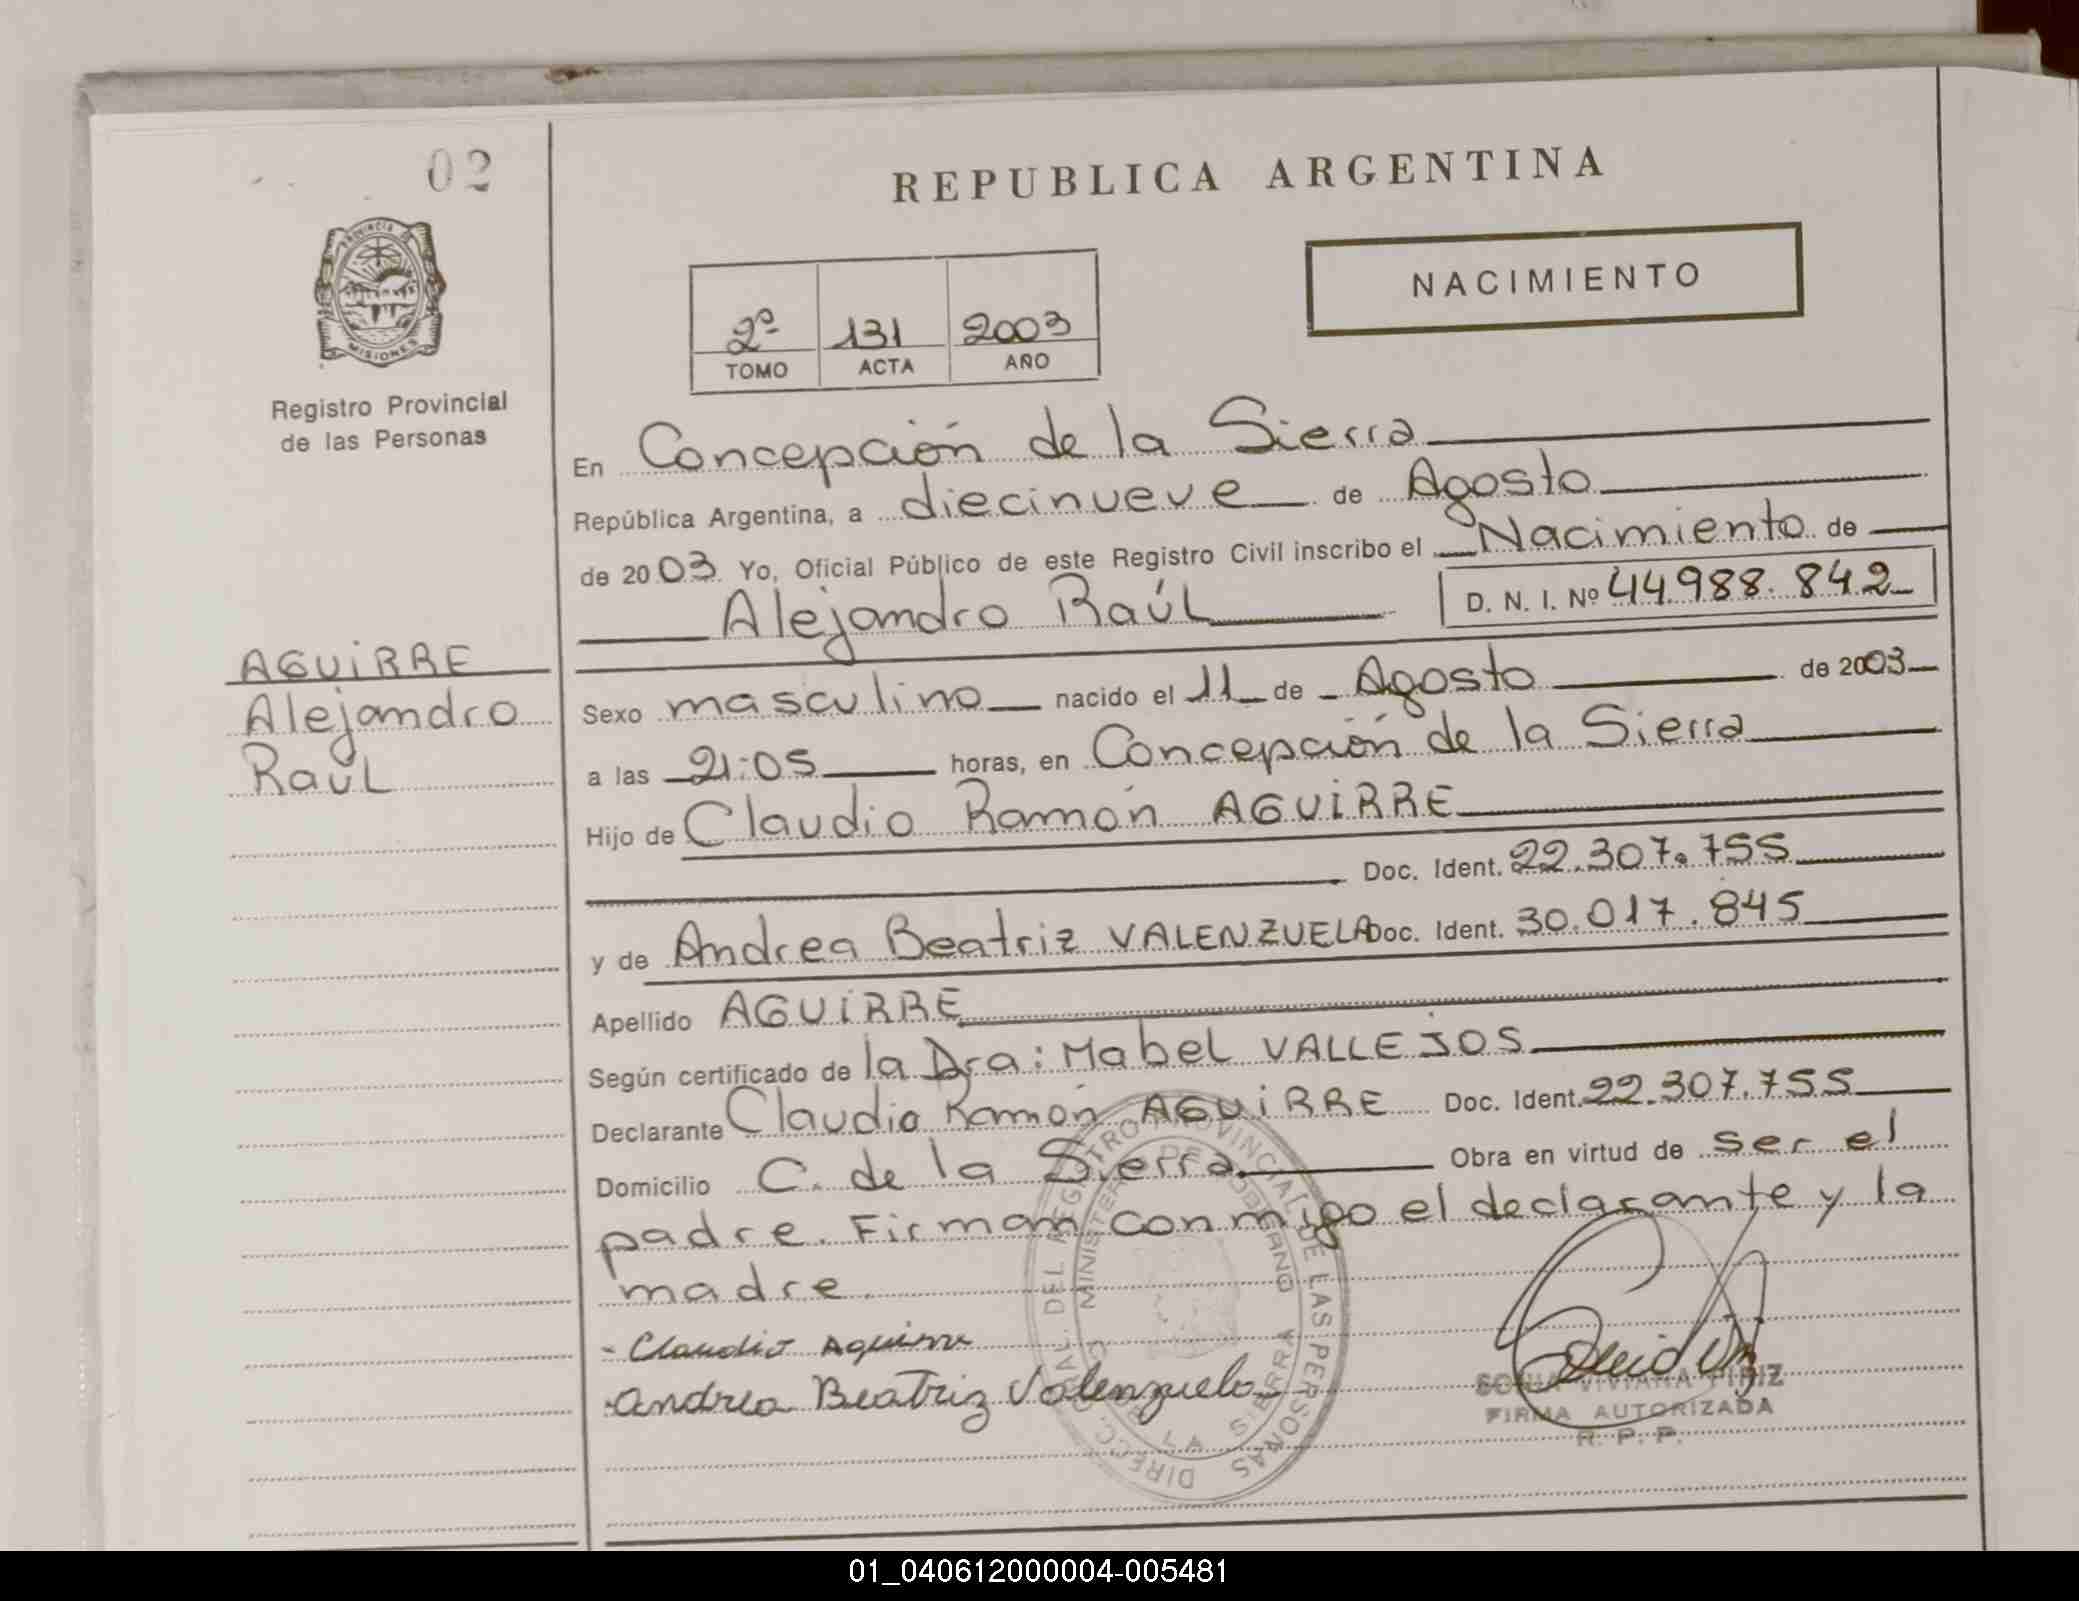 02
REPUBLICA ARGENTINA
NACIMIENTO
PROVINCIA DE
MISIONES
2º 131 2003
TOMO ACTA AÑO
Registro Provincial
de las Personas
En Concepción de la Sierra
República Argentina, a diecinueve de Agosto
de 2003 Yo, Oficial Público de este Registro Civil inscribo el Nacimiento de
Alejandro Raúl D. N. I. Nº 44.988.842
AGUiRRE
Alejandro
Raúl
Sexo masculino nacido el 11 de Agosto de 2003
a las 21:05 horas, en Concepción de la Sierra
Hijo de Claudio Ramón AGUiRRE
Doc. Ident. 22.307.755
y de Andrea Beatriz VALENZUELA Doc. Ident. 30.017.845
Apellido AGUiRRE
Según certificado de la Dra: Mabel VALLEJOS
Declarante Claudio Ramón AGUiRRE Doc. Ident. 22.307.755
Domicilio C. de la Sierra. Obra en virtud de ser el
padre. Firman conmigo el declarante y la
madre.
- Claudio Aguirre
Andrea Beatriz Valenzuela
DIRECC. GRAL. DEL REGISTRO PROVINCIAL DE LAS PERSONAS
MINISTERIO DE GOBIERNO
LA SIERRA
SONIA VIVIANA PIRIZ
FIRMA AUTORIZADA
R. P. P.
01_040612000004-005481